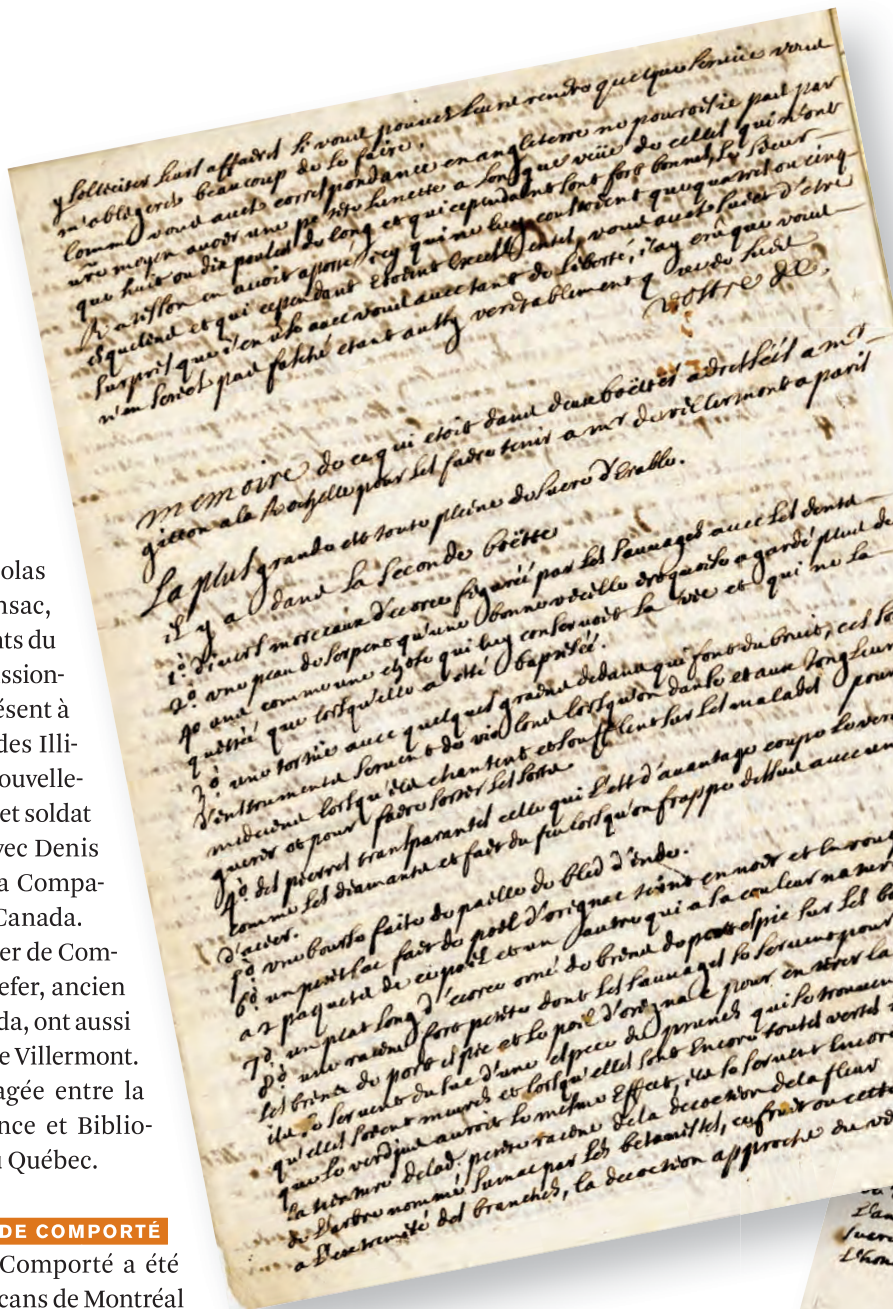 y solliciter leurs affaires si vous pouvez leur rendre quelque service vous
m'obligerez beaucoup de le faire.
comme vous avez correspondance en angleterre ne pourois ie pas par
vrē moyen avoir une petite lunette a longue veüe de celles qui n'ont
que huit ou dix poulces de long et qui cependant sont fort bonnes, le sieur
Ratisson en avoit apporté icy qui ne luy coustoient que quatre ou cinq
esquelins et qui cependant etoient excellentes, vous avez sujet d'etre
surpris que i'en use avec vous avec tant de liberté, i'ay crû que vous
n'en seriez pas faché etant aussy veritablement que
vostre &c.
memoire de ce qui etoit dans deux boëttes adressées a mr
gitton a la Rochelle pour les faire tenir a mr de villermont a paris
La plus grande est toute pleine de sucre d'Erable.
il y a dans la seconde boëtte
1º. divers morceaux d'ecorce figurée par les sauvages avec les dents
2º. une peau de serpent qu'une bonne vieille iroquoise a gardé plus de
40 ans comme une chose qui luy conservoit la vie et qui ne la
quittée que lorsqu'elle a été baptisée.
3º. une tortüe avec quelques grains dedans qui font du bruit, ces
d'instruments servent de violons lorsqu'on danse et aux Jongleurs
medecins lorsqu'ils chantent et soufflent sur les malades pour
guerir et pour faire sortir le sorts
4º. des pierres transparantes celle qui l'est d'avantage coupe le verre
comme les diamants et fait du feu lorsqu'on frappe dessus avec un
d'acier.
5º. une bourse faite de paille de bled d'inde.
6º. un petit sac fait de poil d'orignac teint en noir et en rouge
a 2 paquets de ce poil et un autre qui a la couleur nature
7º. un plat long d'ecorce orné de brins de port espic sur les bo
8º. une racine fort petite dont les sauvages se servent pour
les brins de port espic et le poil d'orignac pour en tirer la
ils se servent du suc d'une espece de prunes qui se trouvent
qu'elles soient meures et lorsqu'elles sont encore toutes vertes
que le verdjus auroit le mesme effect, ils se servent encore
la teinture de lad. petite racine de la decoction de la fleur
de l'arbre nommé sumac par les botanistes, ce fruit ou cette
a l'extremité des branches, la decoction approche du
olas
nsac,
ts du
ission-
ésent à
des Illi-
ouvelle-
et soldat
vec Denis
a Compa-
Canada.
er de Com-
efer, ancien
da, ont aussi
e Villermont.
agée entre la
nce et Biblio-
u Québec.
DE COMPORTÉ
Comporté a été
cans de Montréal